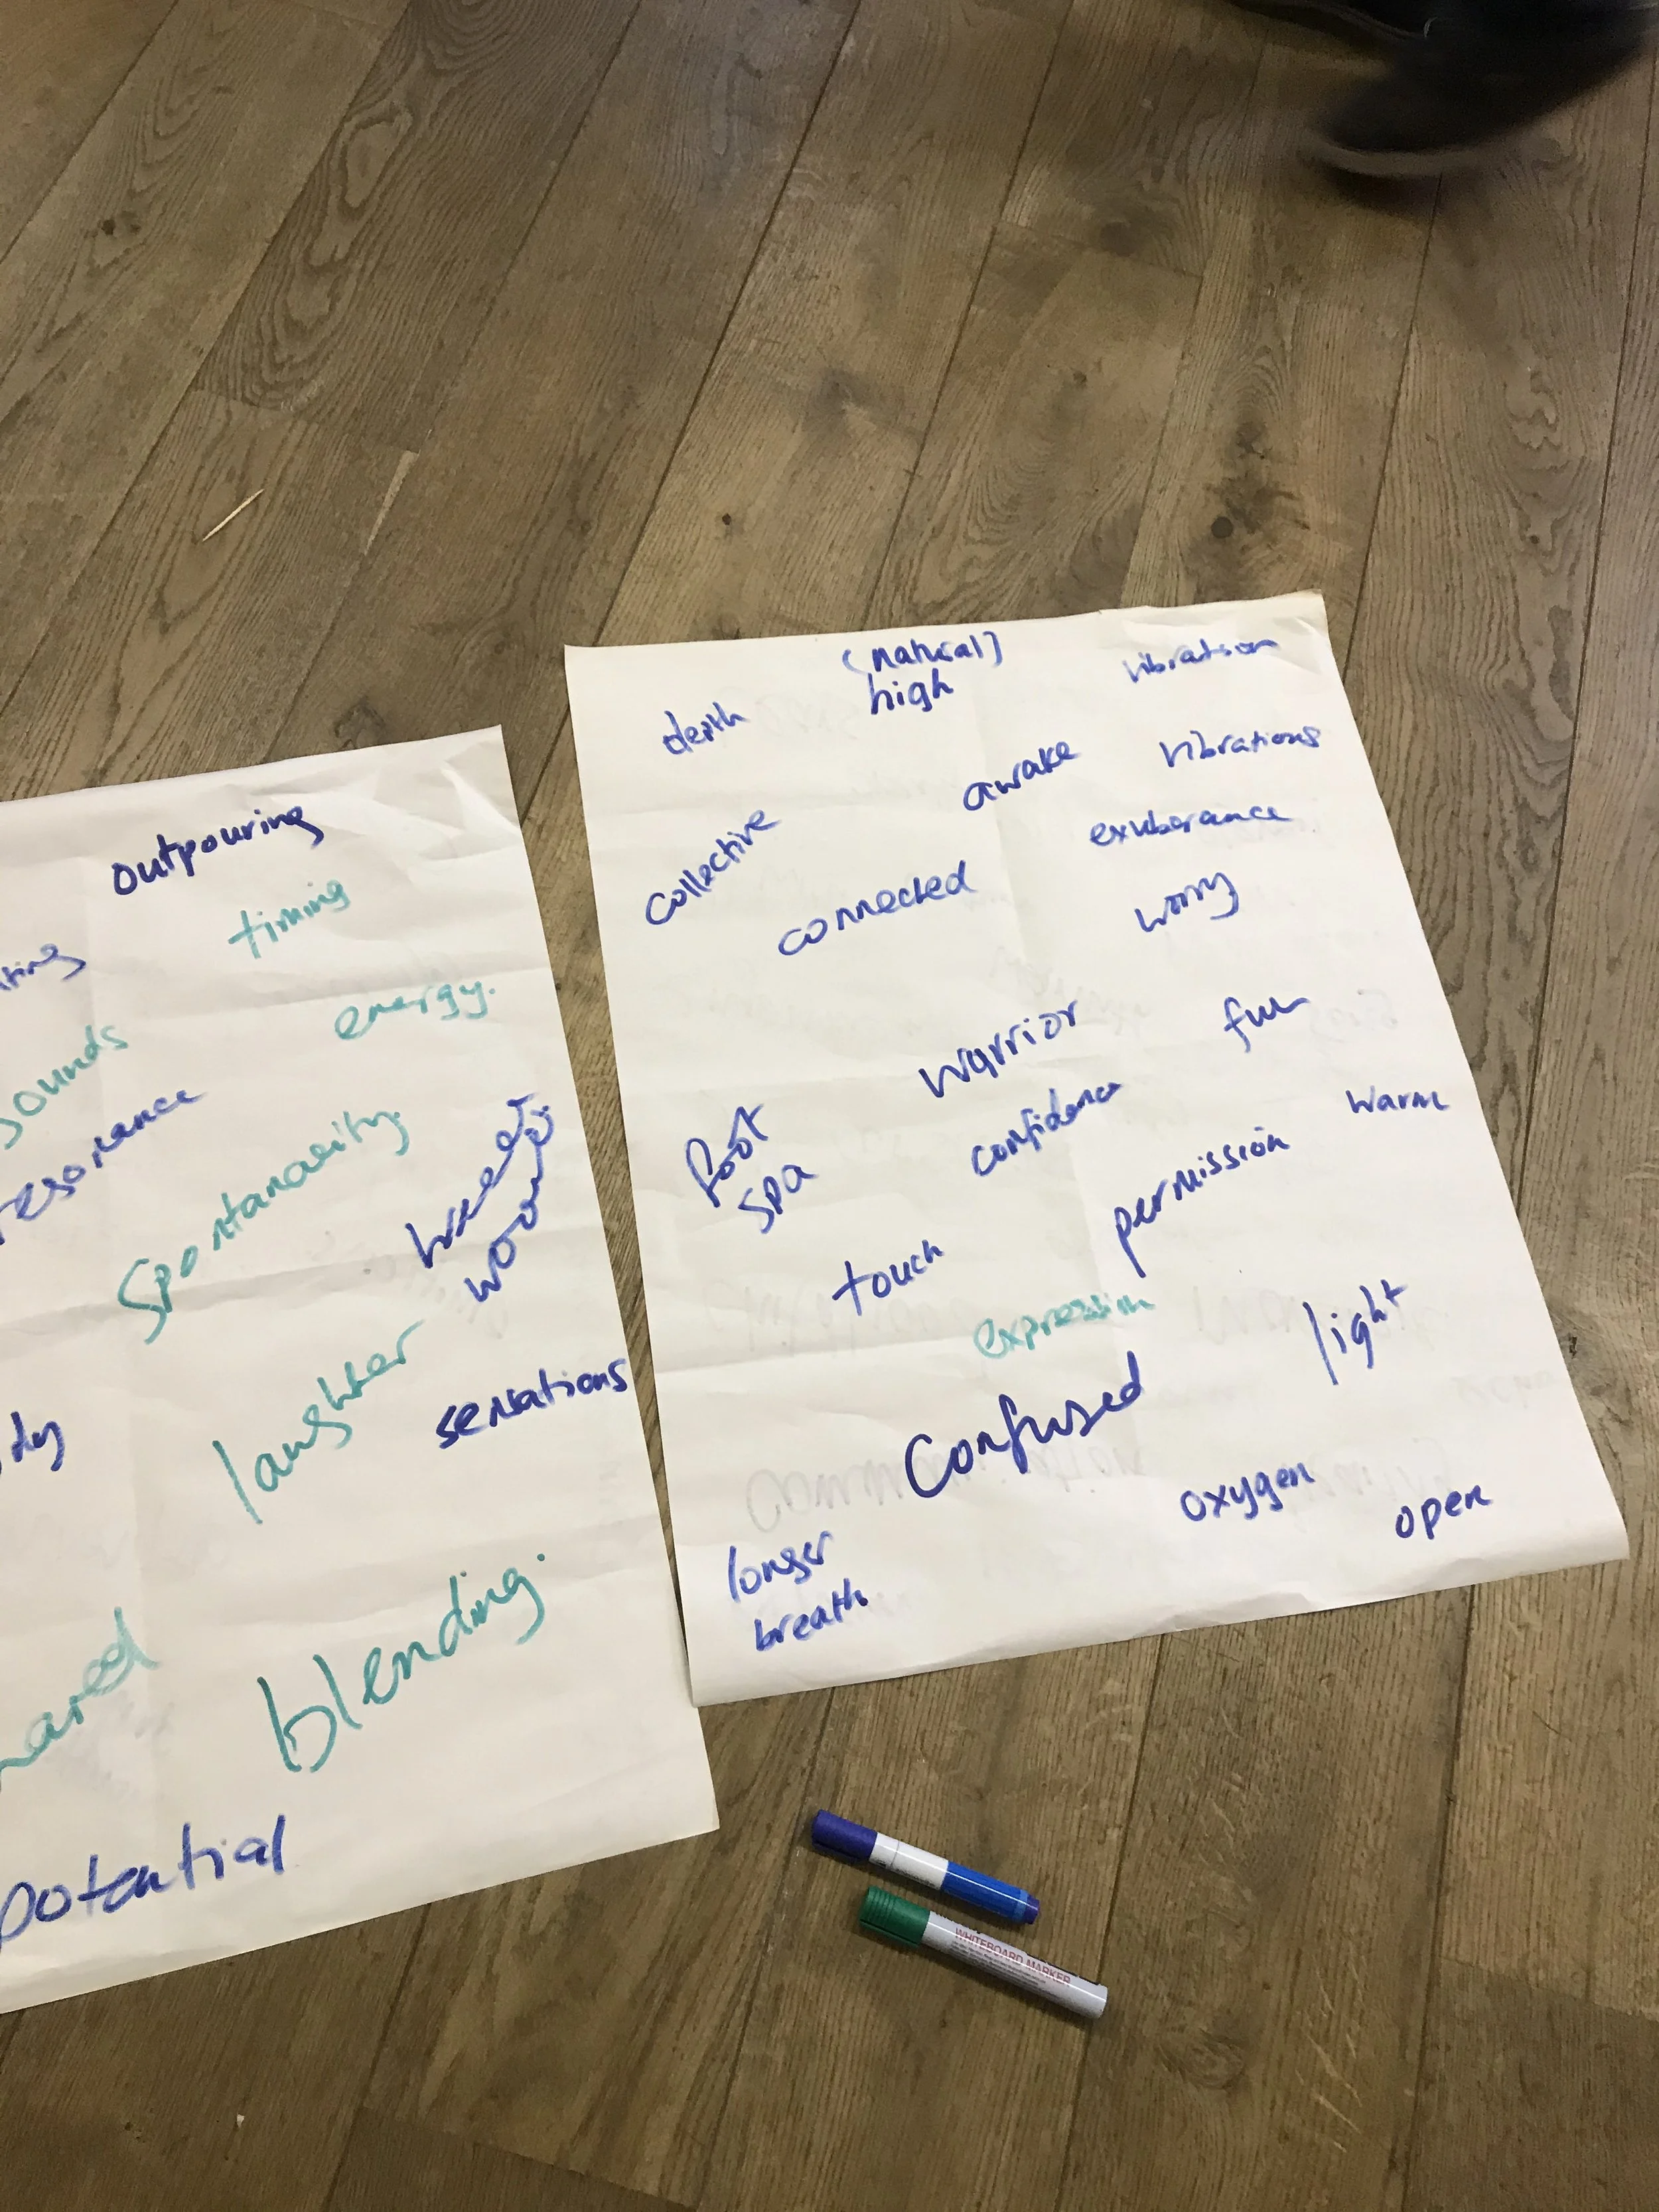 outpouring
timing
energy.
sounds
resonance
spontanaeity.
laughter
sensations
blending.
potential
(natural)
high
vibration
depth
awake
vibrations
collective
exuberance
connected
worry
warrior
fun
foot
spa
confidence
warm
permission
touch
expression
light
confused
oxygen
open
longer
breath
WHITEBOARD MARKER